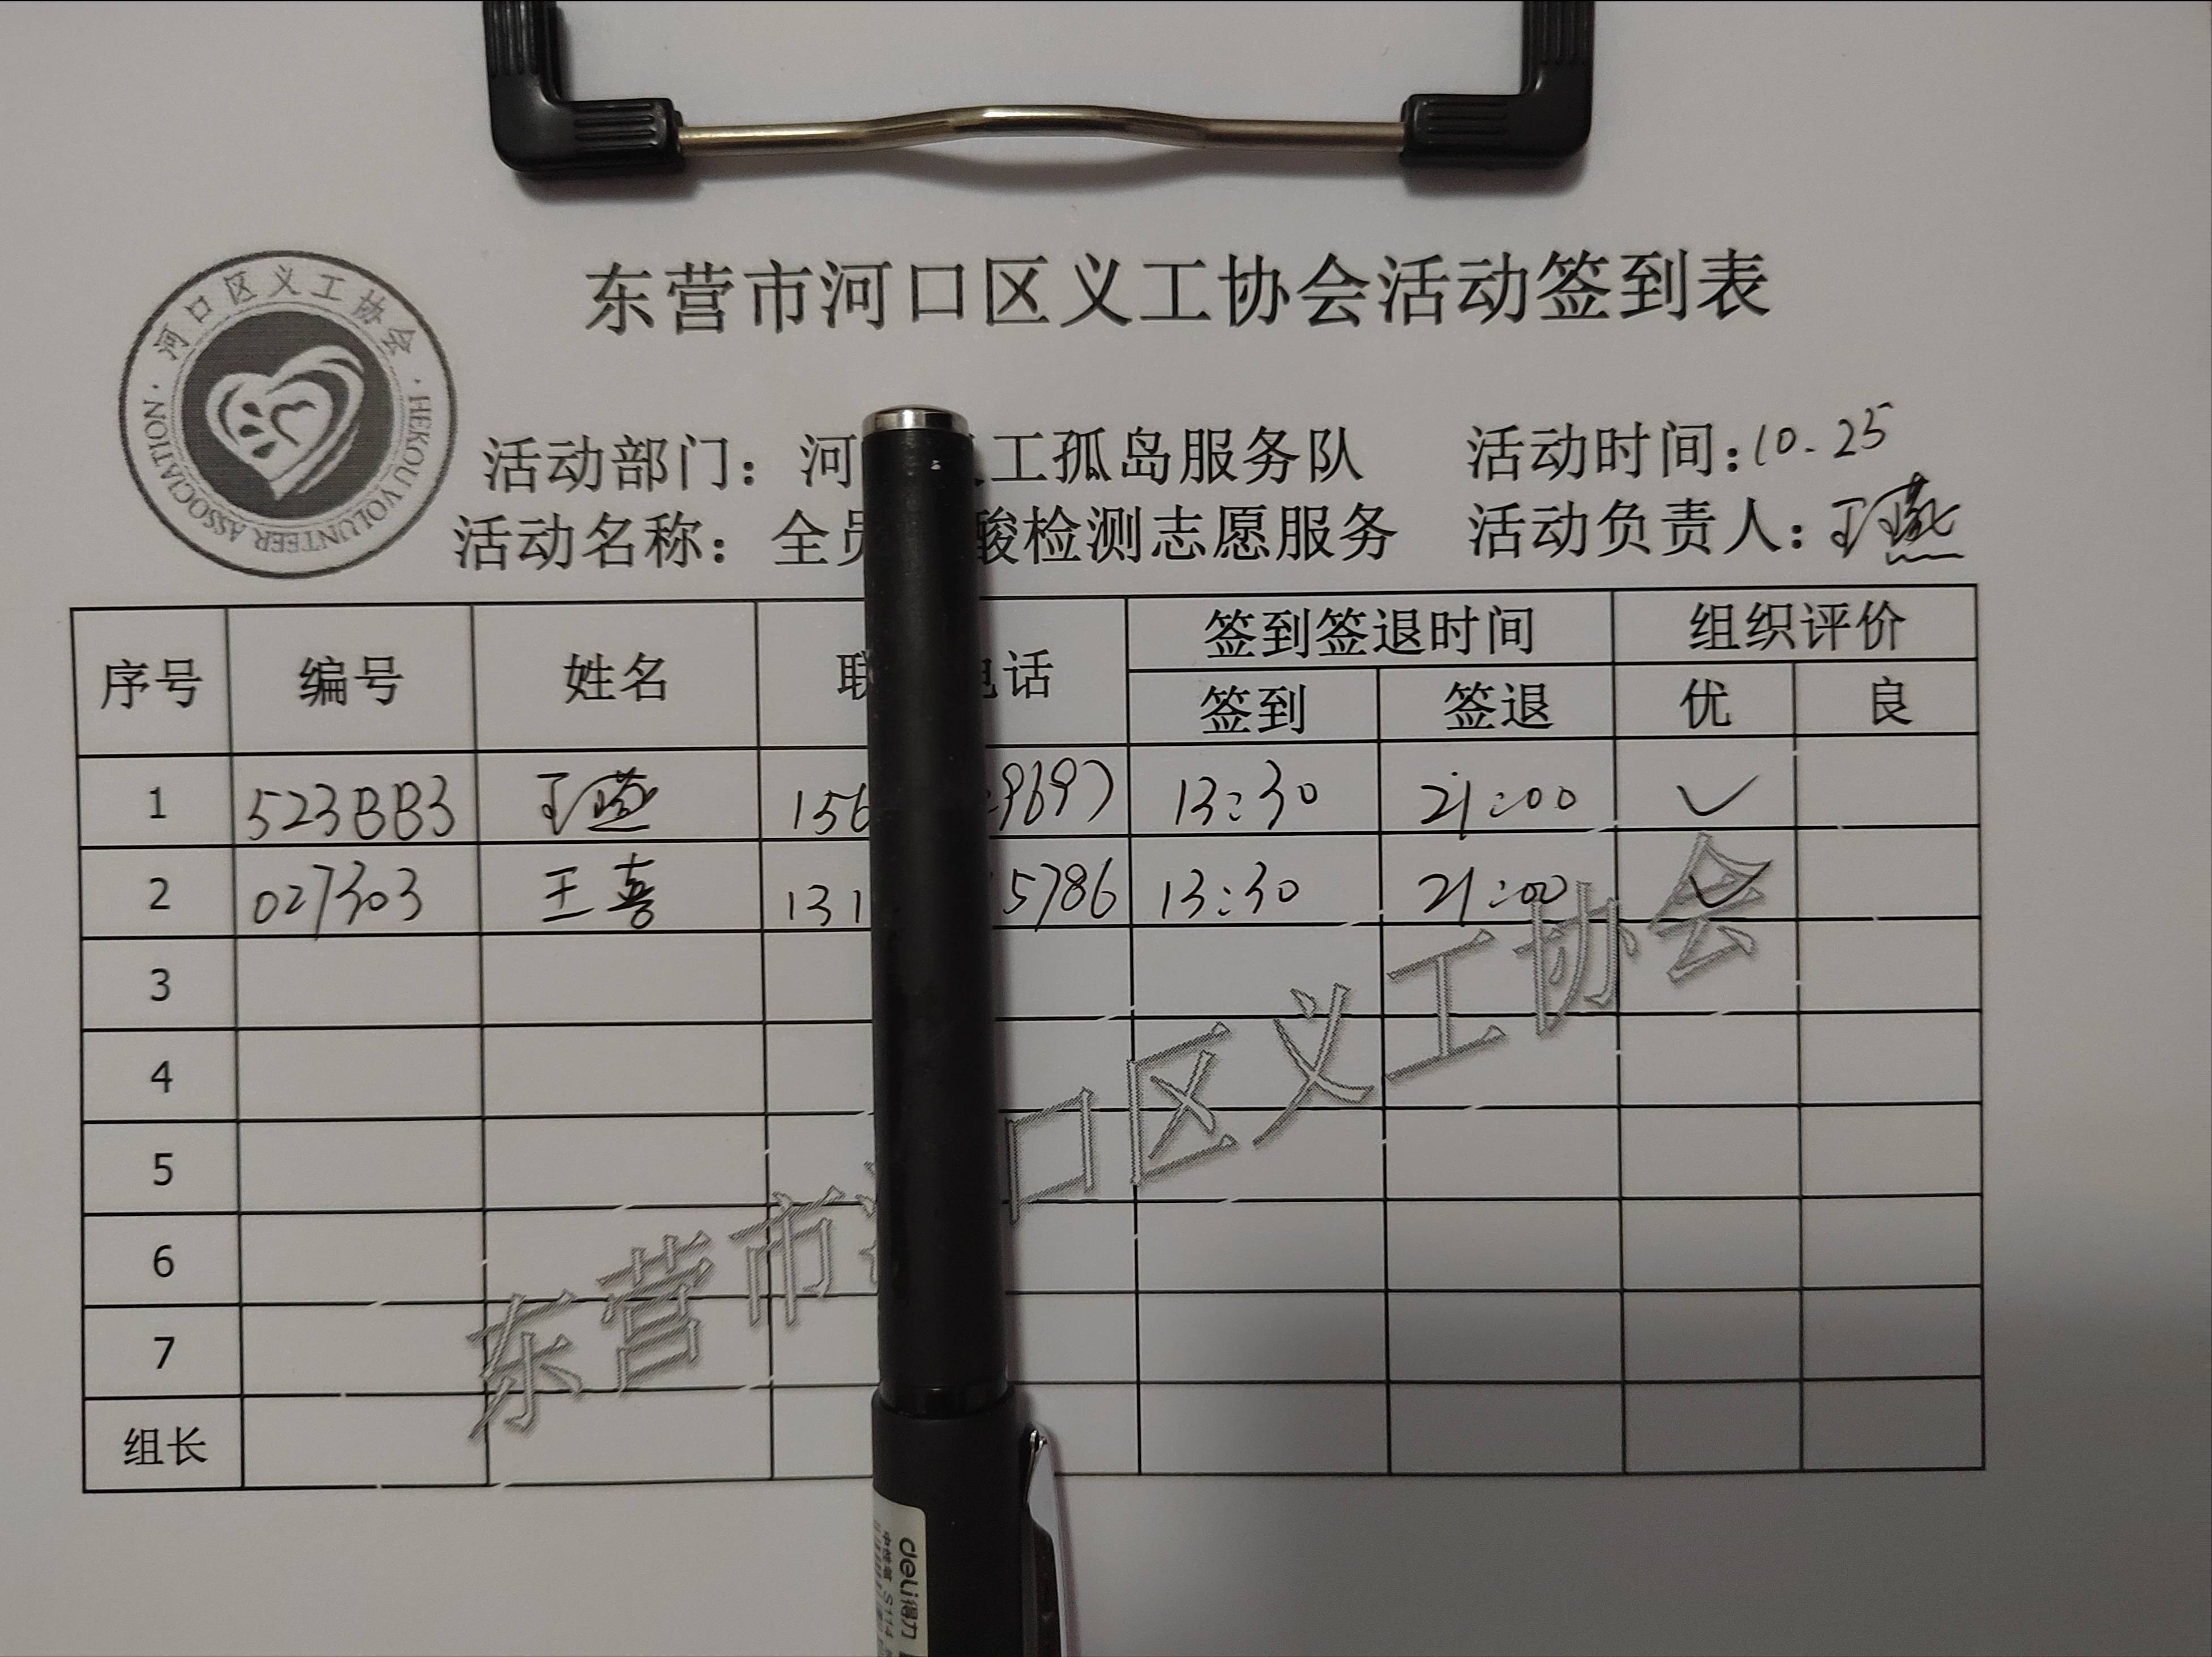 东营市河口区义工协会活动签到表
河口区义工协会
HEKOU VOLUNTEER ASSOCIATION
活动部门：河 工孤岛服务队 活动时间：10.25
活动名称：全员 酸检测志愿服务 活动负责人：王燕
序号 编号 姓名 联 电话 签到签退时间 组织评价
签到 签退 优 良
1 523BB3 王燕 156 9697 13:30 21:00 ✓
2 027303 王喜 131 5786 13:30 21:00 ✓
3
4
5
6
7
组长
东营市 口区义工协会
deli得力
S114